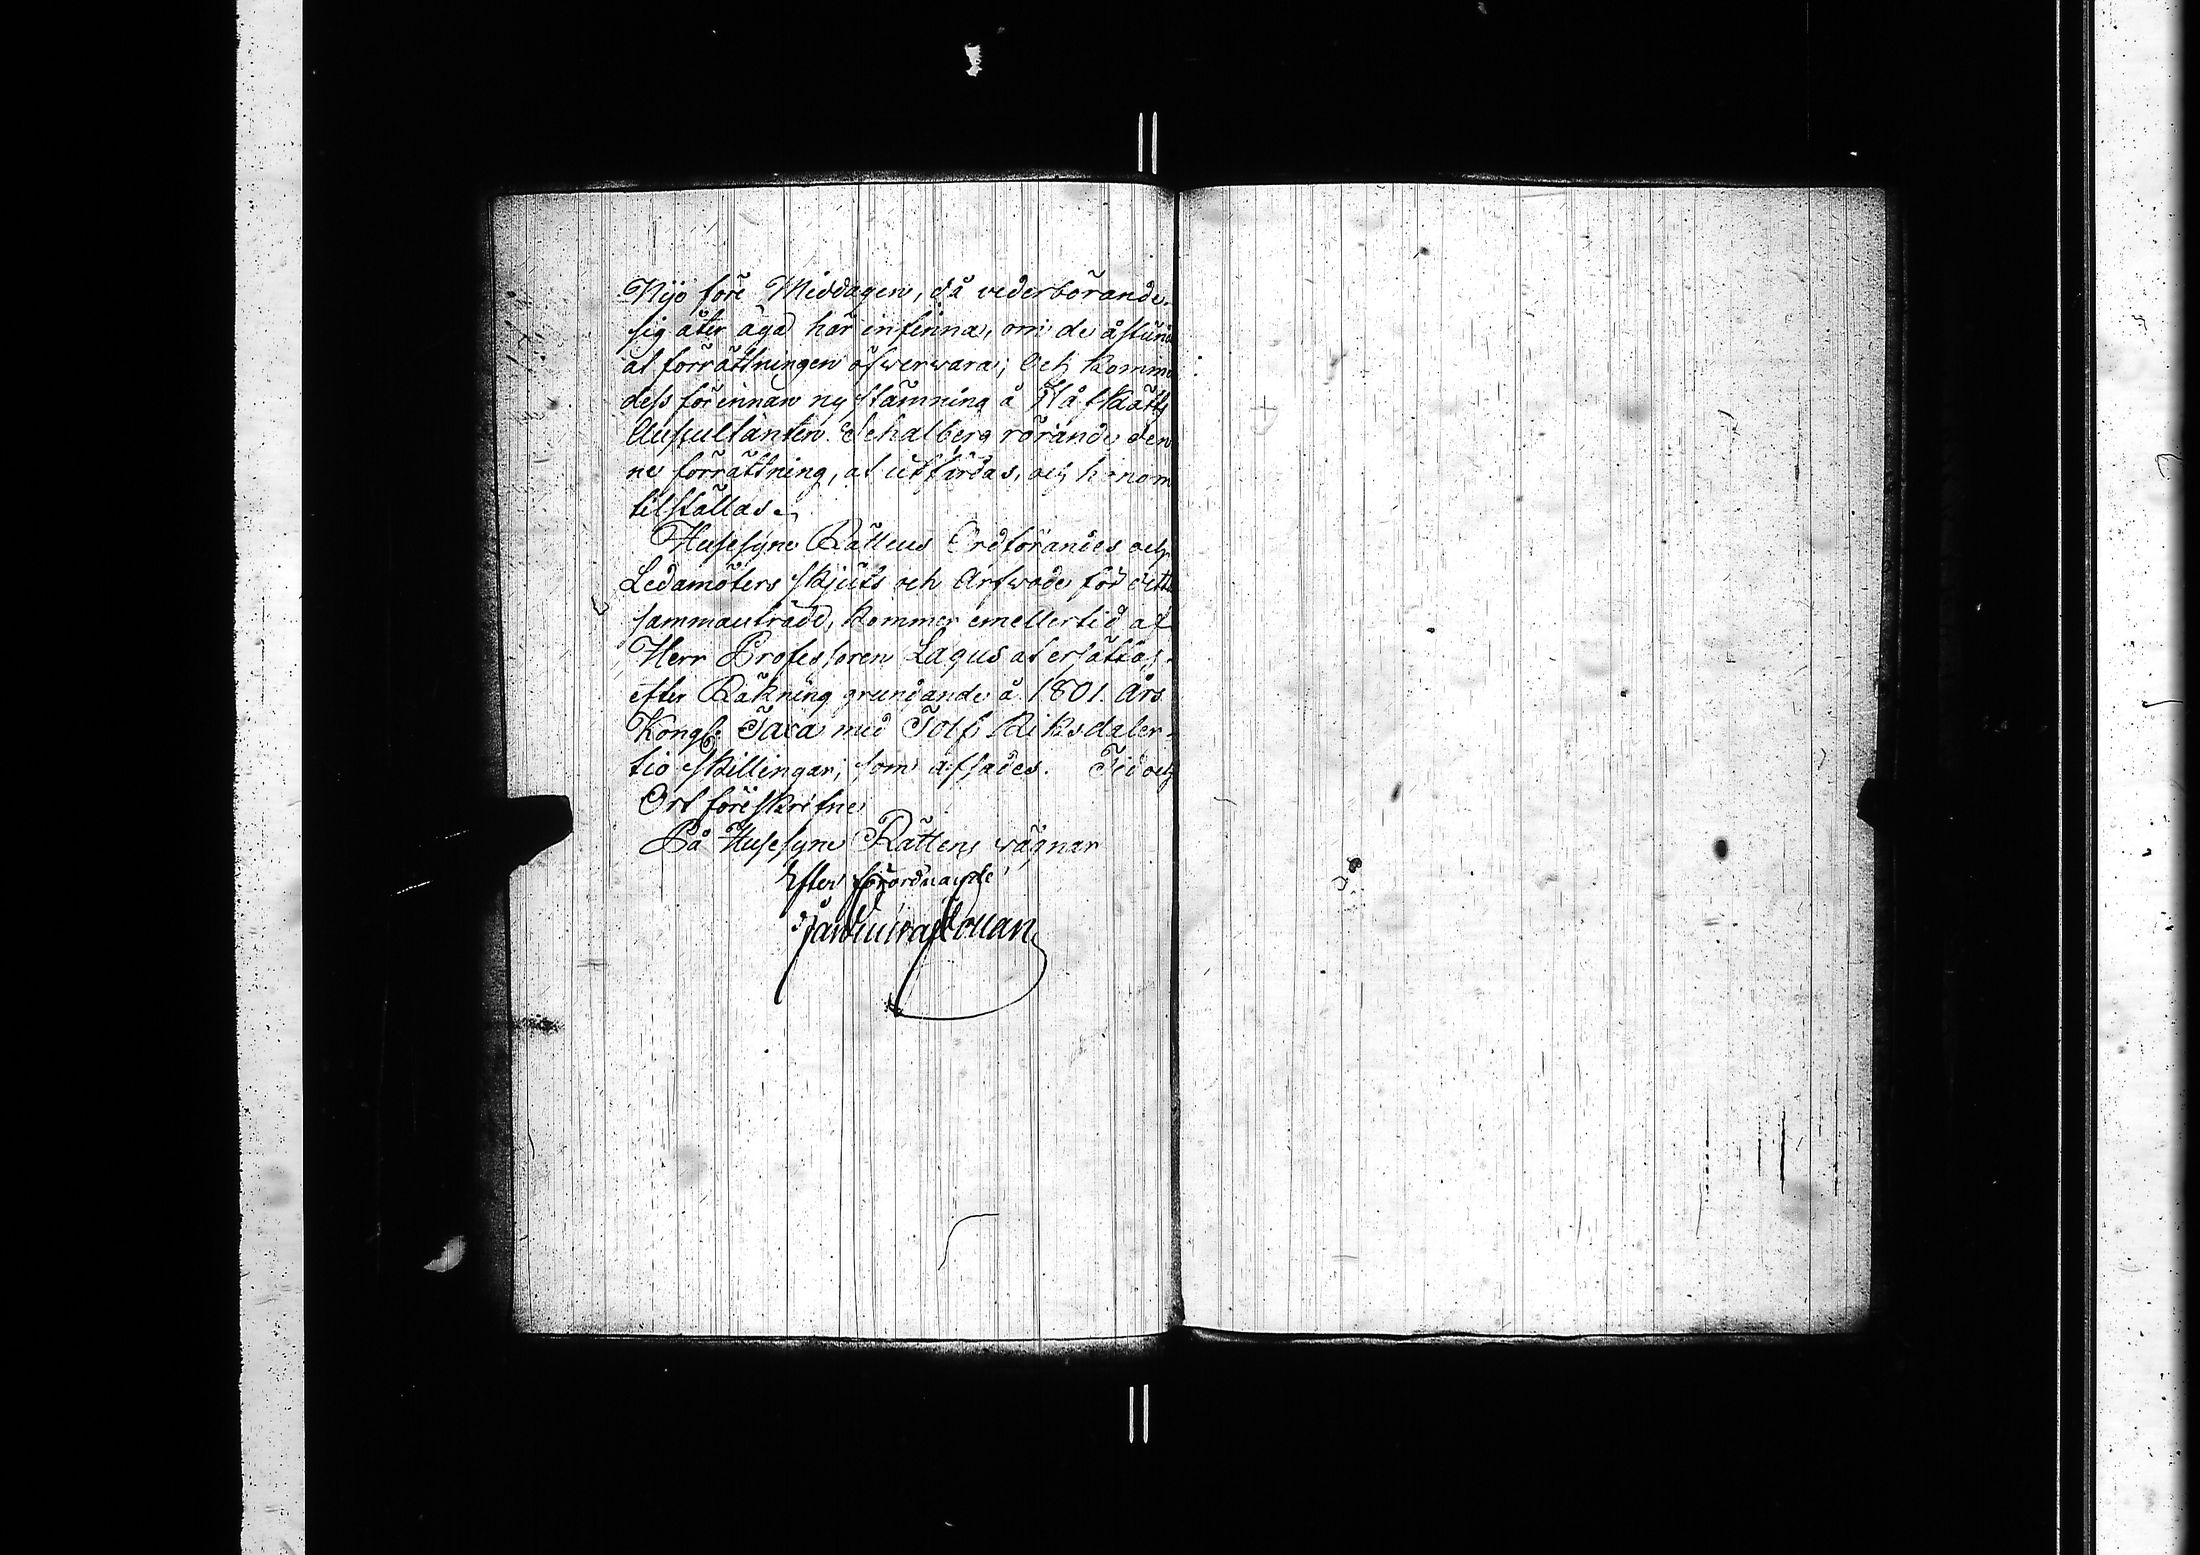 Nijo före Middagen, då vederbörande
sig åter äga här infinna, om de åstund
at förrättningen öfwerwara; Och komme
dess förinnan ny stämning å
Auscultanten Schalberg rörande den
ne förrättning, at utfärdas, och honom
tilställas.
Husesyns Rättens Ordförandes och
Ledamöters skjuts och Arfwode för detta
sammanträde, kommer emellertid af
Herr Professoren Lagus at ersättas
efter Räkning grundande å 1801. Års
Kongl. Taxa med Tolf Riksdaler
tio skillingar; som afsades. Tid och
Ort föreskrifne
På Husesyns Rättens wägnar
Efter förordnande